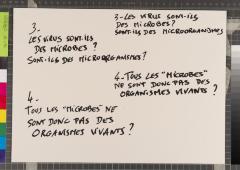 3.
LES VIRUS SONT-ILS
DES MICROBES ?
SONT-ILS DES MICROORGANISMES ?
3-LES VIRUS SONT-ILS
DES MICROBES ?
SONT-ILS DES MICROORGANISMES
4.
TOUS LES "MICROBES" NE
SONT DONC PAS DES
ORGANISMES VIVANTS ?
4-TOUS LES "MICROBES"
NE SONT DONC PAS DES
ORGANISMES VIVANTS ?